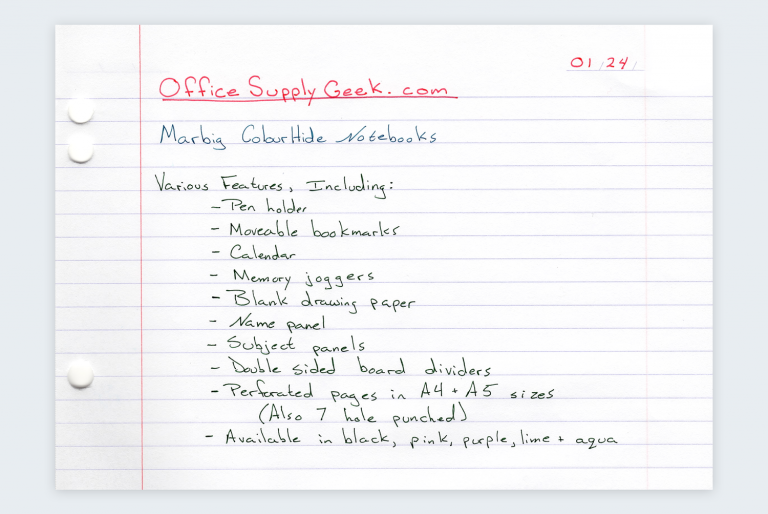 01/24/
OfficeSupplyGeek.com
Marbig ColourHide Notebooks
Various Features, Including:
- Pen holder
- Moveable bookmarks
- Calendar
- Memory joggers
- Blank drawing paper
- Name panel
- Subject panels
- Double sided board dividers
- Perforated pages in A4 + A5 sizes
(Also 7 hole punched)
- Available in black, pink, purple, lime + aqua